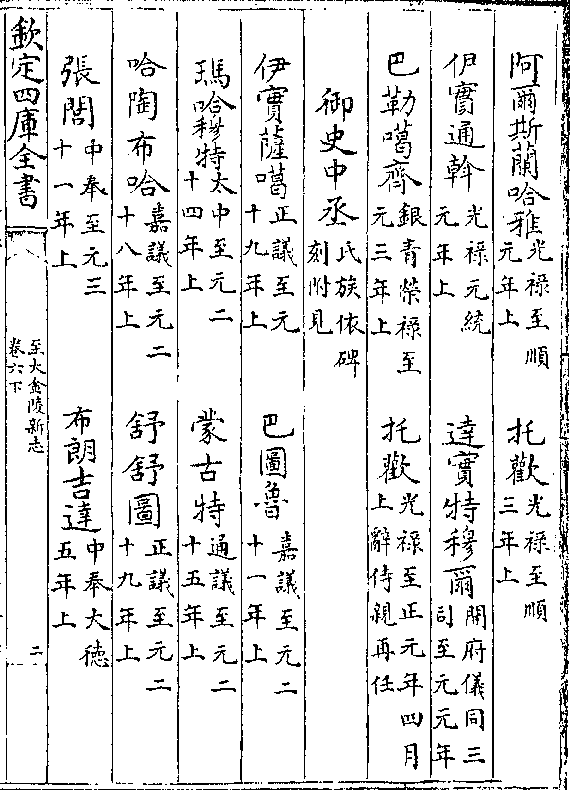 阿爾斯蘭哈雅光祿至順元年上 托歡光祿至順三年上
伊賽通幹光祿元統元年上 達實特穆爾開府儀同三司至元元年
巴勒噶齊銀青榮祿至元三年上 托歡光祿至正元年四月上辭侍親再任
御史中丞氏族依碑刻附見
伊實薩噶正議至元十九年上 巴圖魯嘉議至元二十一年上
瑪哈穆特太中至元二十四年上 蒙古特通議至元二十五年上
哈陶布哈嘉議至元二十八年上 舒舒圖正議至元二十九年上
張閭中奉至元三十一年上 布朗吉達中奉大德五年上
欽定四庫全書
至大金陵新志
卷六下
二